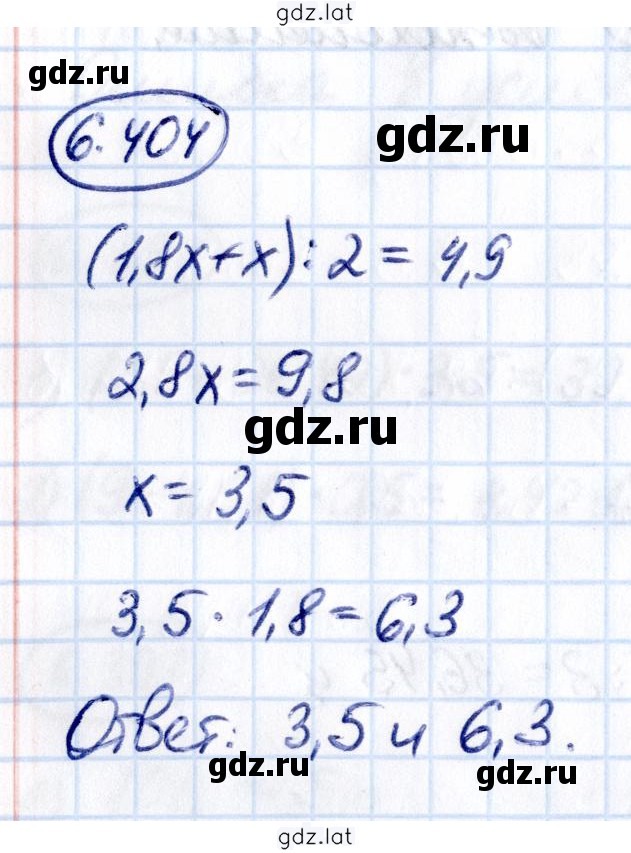 gdz.lat
gdz.ru
6.404
gdz.ru
(1,8x+x):2=4,9
2,8x=9,8
gdz.ru
x=3,5
3,5·1,8=6,3
Ответ: 3,5 и 6,3.
gdz.ru
gdz.ru
gdz.lat